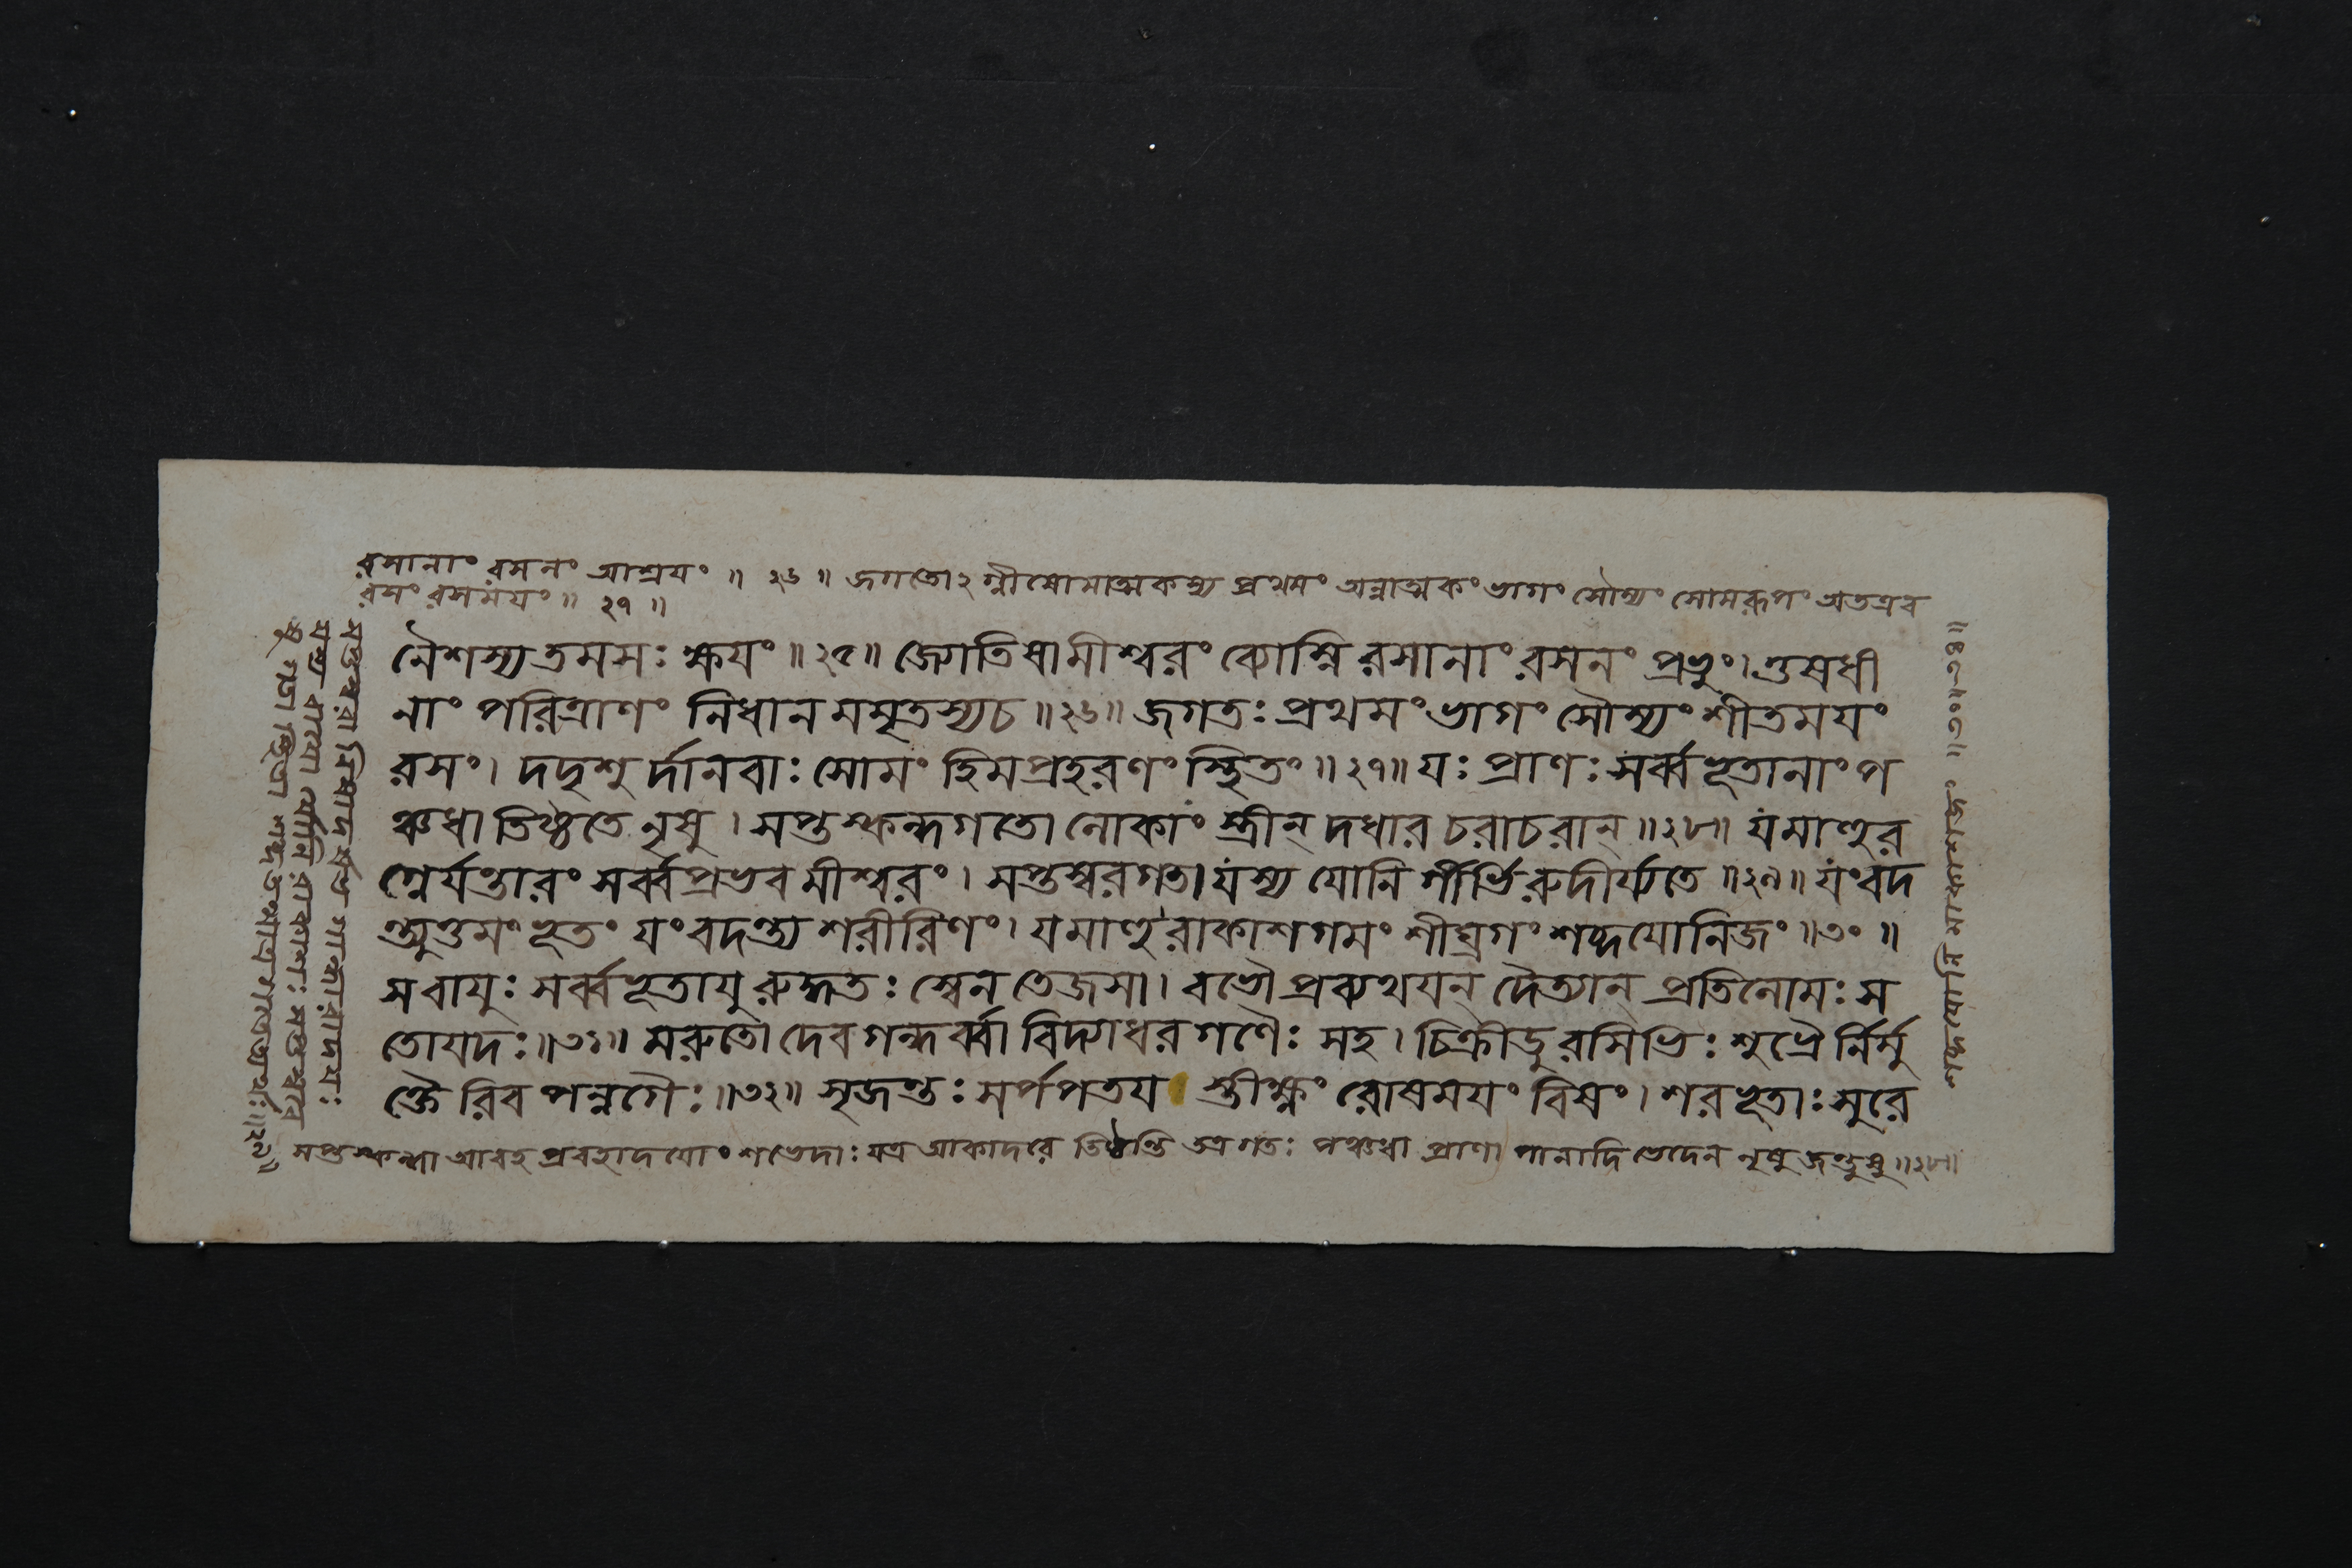 রসানাং রসনং আশ্রয়ং ॥ ২৬ ॥ জগতোঽগ্নীষোমাত্মকস্য প্রথমং অন্নাত্মকং ভাগং সৌম্যং সোমরূপং অতএব
রসং রসময়ং ॥ ২৭ ॥
নৈশস্য তমসঃ ক্ষয়ং ॥ ২৫ ॥ জ্যোতিষামীশ্বরং ব্যোম্নি রসানাং রসনং প্রভুং। ওষধী
নাং পরিত্রাণং নিধানমমৃতস্য চ ॥ ২৬ ॥ জগতঃ প্রথমং ভাগং সৌম্যং শীতময়ং
রসং। দদৃশুর্দানবাঃ সোমং হিমপ্রহরণং স্থিতং ॥ ২৭ ॥ যঃ প্রাণঃ সর্ব্বভূতানাং প
ঞ্চধা তিষ্ঠতে নৃষু। সপ্তস্কন্দগতো লোকাং স্ত্রীন্ দধার চরাচরান্ ॥ ২৮ ॥ যমাহুর
গ্নের্যন্তারং সর্ব্বপ্রভবমীশ্বরং। সপ্তস্বরগতা যস্য যোনির্গীর্ভিরুদীর্য্যতে ॥ ২৯ ॥ যং বদ
ন্ত্যুত্তমং ভূতং যং বদন্ত্যশরীরিণং। যমাহুরাকাশগমং শীঘ্রগং শব্দযোনিজং ॥ ৩০ ॥
স বায়ুঃ সর্ব্বভূতায়ুরুদ্ধতঃ স্বেন তেজসা। ববৌ প্রব্যথয়ন্ দৈত্যান্ প্রতিলোমঃ স
তোয়দঃ ॥ ৩১ ॥ মরুতো দেবগন্ধর্ব্বা বিদ্যাধরগণৈঃ সহ। চিক্রীডুরসিভিঃ শুভ্রৈর্নির্মু
ক্তৈরিব পন্নগৈঃ ॥ ৩২ ॥ সৃজন্তঃ সর্পপতয় স্তীক্ষ্ণং রোষময়ং বিষং। শরভূতাঃ সুরে
সপ্তস্কন্ধা আবহ প্রবহাদয়ো ভেদাঃ যত্র তিষ্ঠন্তি তত্রগতঃ পঞ্চধা প্রাণাপানাদি ভেদেন নৃষু জন্তুষু ॥ ২৮ ॥
সপ্তস্বরা নিষাদর্ষভ গান্ধারাদয়ঃ
যস্য বায়ো র্যোনি রাকাশঃ সপ্তস্বরে